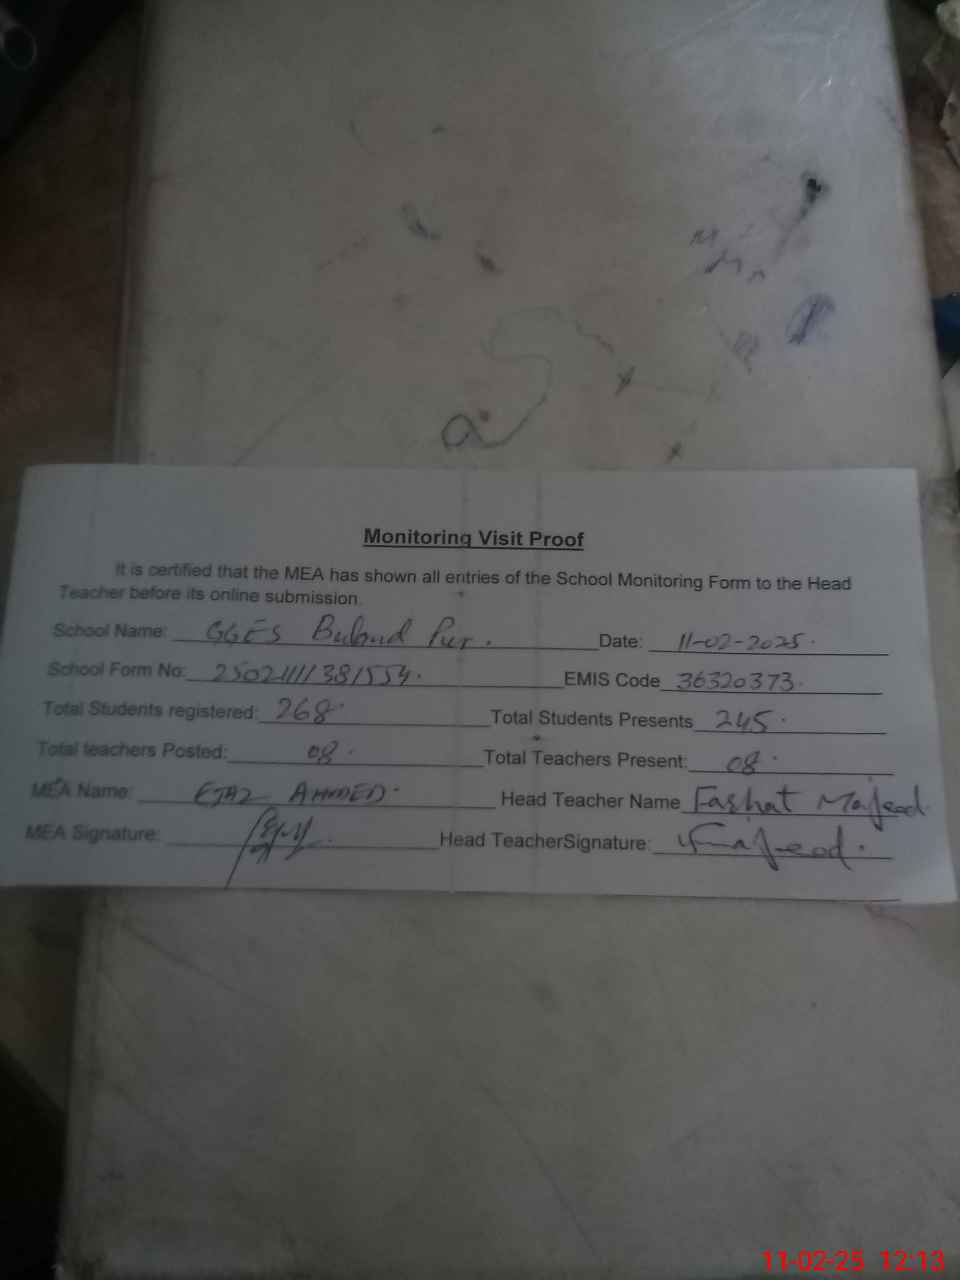 a
Monitoring Visit Proof
It is certified that the MEA has shown all entries of the School Monitoring Form to the Head
Teacher before its online submission.
School Name: GGES Buland Pur. Date: 11-02-2025.
School Form No: EMIS Code 36320373.
Total Students registered: 268. Total Students Presents 245.
Total teachers Posted: 08. Total Teachers Present: 08.
MEA Name: EJAZ AHMED. Head Teacher Name Majeed
MEA Signature: Head TeacherSignature:
11-02-25 12:13